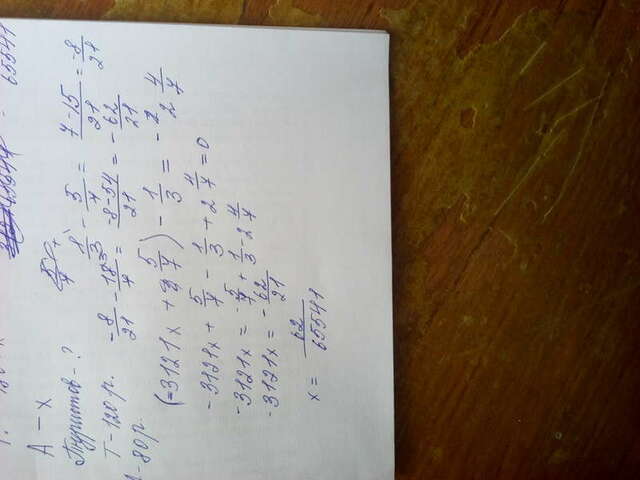 65541
A - x
Туристов - ?
T - 120 р.
- 80 р.
1/3 - 5/7 = (7-15)/21 = -8/21
-8/21 - 18/7 = (-8-54)/21 = -62/21
(-3121x + 5/7) - 1/3 = -2 4/7
-3121x + 5/7 - 1/3 + 2 4/7 = 0
-3121x = -5/7 + 1/3 - 2 4/7
-3121x = -62/21
x = 62/65541